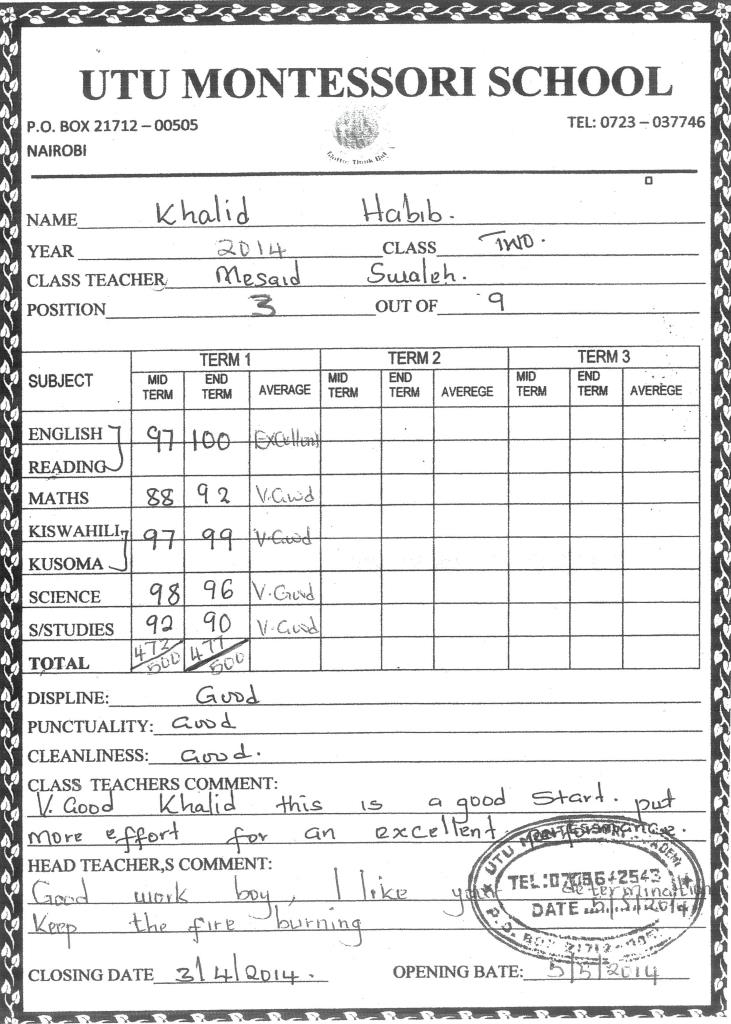 UTU MONTESSORI SCHOOL
P.O. BOX 21712 – 00505 TEL: 0723 – 037746
NAIROBI
NAME Khalid Habib.
YEAR 2014 CLASS TWO.
CLASS TEACHER Mesaid Swaleh.
POSITION 3 OUT OF 9
SUBJECT TERM 1 TERM 2 TERM 3
MID TERM END TERM AVERAGE MID TERM END TERM AVEREGE MID TERM END TERM AVEREGE
ENGLISH 97 100 Excellent
READING
MATHS 88 92 V.Good
KISWAHILI 97 99 V.Good
KUSOMA
SCIENCE 98 96 V.Good
S/STUDIES 92 90 V.Good
TOTAL 472/500 477/500
DISPLINE: Good
PUNCTUALITY: Good
CLEANLINESS: Good.
CLASS TEACHERS COMMENT:
V. Good Khalid this is a good start. put
more effort for an excellent performance.
HEAD TEACHER,S COMMENT:
Good work boy, I like your determination
Keep the fire burning
UTU MONTESSORI ACADEMY
DATE 5/5/2014
P.O. BOX 21712-005
CLOSING DATE 3/4/2014. OPENING BATE: 5/5/2014